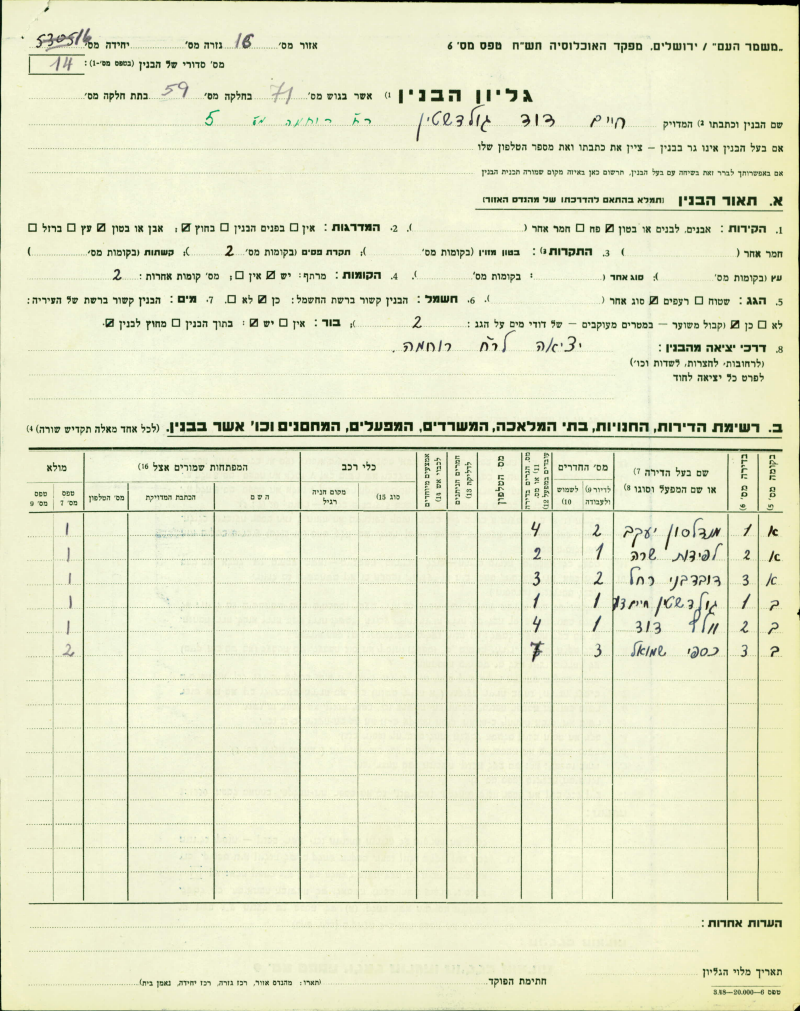 „משמר העם" / ירושלים. מפקד האוכלוסיה תש"ח טפס מס׳ 6 אזור מס׳ 18 גזרה מס׳ יחידה מס׳
מס׳ סדורי של הבנין (בטפס מס׳-1): 14
גליון הבנין (1 אשר בגוש מס׳ 71 בחלקה מס׳ 59 בתת חלקה מס׳
שם הבנין וכתבתו (2 המדויק חיים דוד גולדשטין רח׳ רוחמה מס 5
אם בעל הבנין אינו גר בבנין – ציין את כתבתו ואת מספר הטלפון שלו
אם באפשרותך לברר זאת בשיחה עם בעל הבנין, תרשום כאן באיזה מקום שמורה תכנית הבנין
א. תאור הבנין (תמלא בהתאם להדרכתו של מהנדס האזור)
1. הקירות: אבנים, לבנים או בטון ☑ פח ☐ חמר אחר ( ). 2. המדרגות: אין ☐ בפנים הבנין ☐ בחוץ ☑: אבן או בטון ☑ עץ ☐ ברזל ☐
חמר אחר ( ) 3. התקרות (3: בטון מזוין (בקומות מס׳ ); תקרת פסים (בקומות מס׳ 2 ); קשתות (בקומות מס׳ )
עץ (בקומות מס׳ ); סוג אחד ( : בקומות מס׳ ). 4. הקומות: מרתף: יש ☑ אין ☐; מס׳ קומות אחרות: 2
5. הגג: שטוח ☐ רעפים ☑ סוג אחר ( ). 6. חשמל: הבנין קשור ברשת החשמל: כן ☑ לא ☐. 7. מים: הבנין קשור ברשת של העיריה:
לא ☐ כן ☑ (קבול משוער – במטרים מעוקבים – של דודי מים על הגג: 2 ); בור: אין ☐ יש ☑: בתוך הבנין ☐ מחוץ לבנין ☑.
8. דרכי יציאה מהבנין: יציאה לרח׳ רוחמה.
(לרחובות, לחצרות, לשדות וכו׳)
לפרט כל יציאה לחוד
ב. רשימת הדירות, החנויות, בתי המלאכה, המשרדים, המפעלים, המחסנים וכו׳ אשר בבנין. (לכל אחד מאלה תקדיש שורה) (4
בקומה מס׳ (5 בדירה מס׳ (6 שם בעל הדירה (7 או שם המפעל וסוגו (8 מס׳ החדרים לדיור (9 לשמוש ולעבודה (10 מס. הגרים בדירה (11 או מס. עובדים במפעל (12 מס הטלפון חמרים הניתנים לדליקה (13 אמצעים מיוחדים לכבוי אש (14 כלי רכב סוג (15 מקום חניה רגיל המפתחות שמורים אצל (16 השם הכתבת המדויקת מס׳ הטלפון מולא טפס מס׳ 7 טפס מס׳ 9
א 1 מנדלסון יעקב 2 4 1
א 2 לפידות שרה 1 2 1
א 3 דובדבני רחל 2 3 1
ב 1 גולדשטין חיים דוד 1 1 1
ב 2 וולף דוד 1 4 1
ב 3 כספי שמואל 3 7 2
הערות אחרות:
תאריך מלוי הגליון חתימת הפוקד (תארו: מהנדס אזור, רכז גזרה, רכז יחידה, נאמן בית)
טפס 6–20.000–3.48